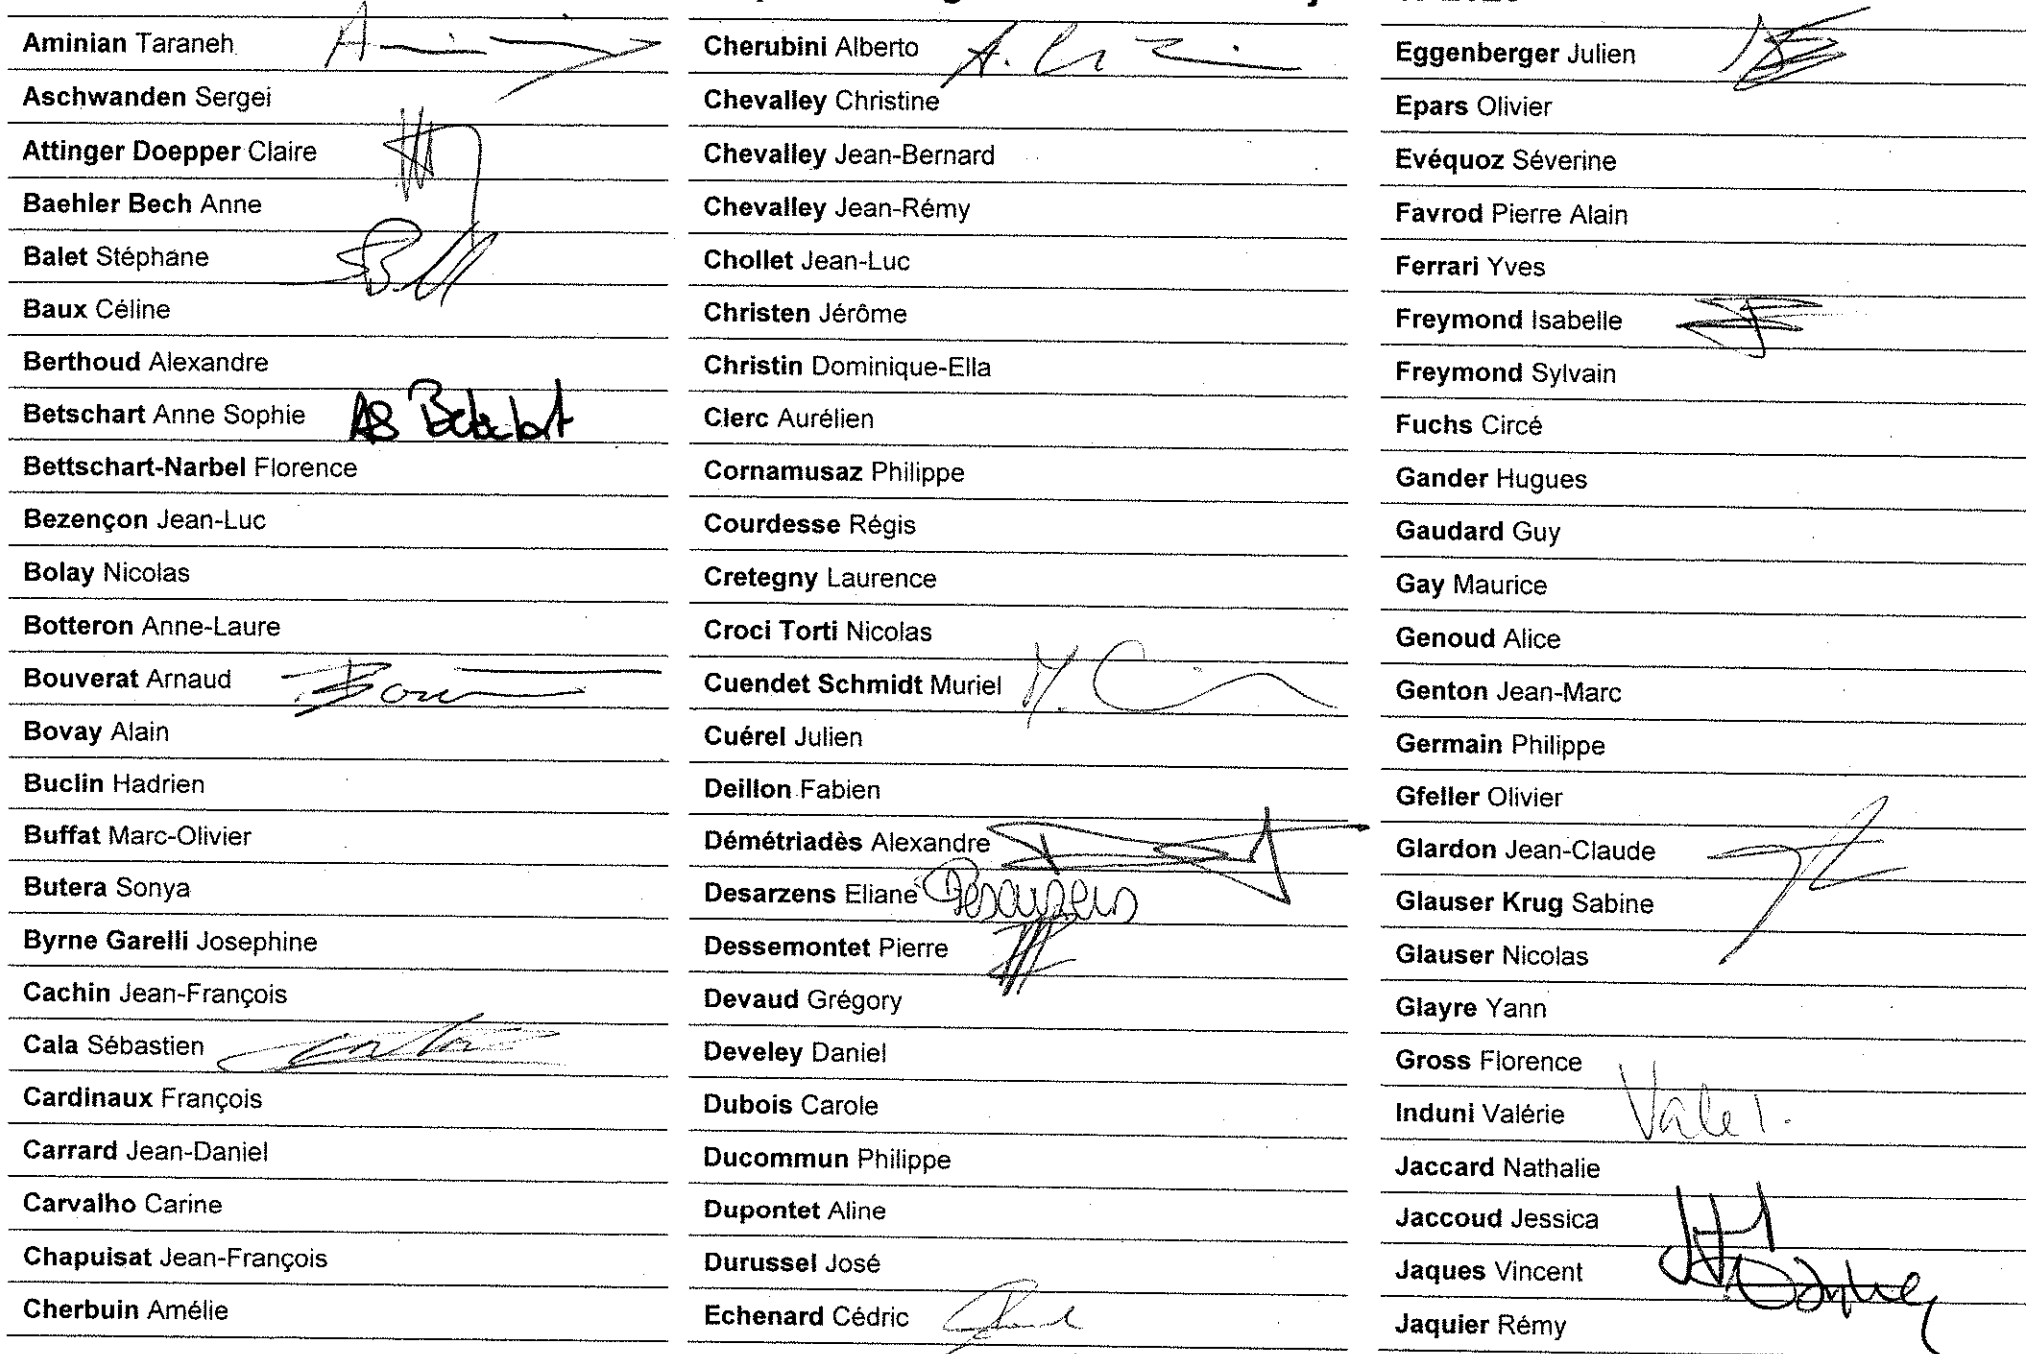 Aminian Taraneh
Aschwanden Sergei
Attinger Doepper Claire
Baehler Bech Anne
Balet Stéphane
Baux Céline
Berthoud Alexandre
Betschart Anne Sophie AS Betschart
Bettschart-Narbel Florence
Bezençon Jean-Luc
Bolay Nicolas
Botteron Anne-Laure
Bouverat Arnaud
Bovay Alain
Buclin Hadrien
Buffat Marc-Olivier
Butera Sonya
Byrne Garelli Josephine
Cachin Jean-François
Cala Sébastien
Cardinaux François
Carrard Jean-Daniel
Carvalho Carine
Chapuisat Jean-François
Cherbuin Amélie
Cherubini Alberto
Chevalley Christine
Chevalley Jean-Bernard
Chevalley Jean-Rémy
Chollet Jean-Luc
Christen Jérôme
Christin Dominique-Ella
Clerc Aurélien
Cornamusaz Philippe
Courdesse Régis
Cretegny Laurence
Croci Torti Nicolas
Cuendet Schmidt Muriel
Cuérel Julien
Deillon Fabien
Démétriadès Alexandre
Desarzens Eliane Desarzens
Dessemontet Pierre
Devaud Grégory
Develey Daniel
Dubois Carole
Ducommun Philippe
Dupontet Aline
Durussel José
Echenard Cédric
Eggenberger Julien
Epars Olivier
Evéquoz Séverine
Favrod Pierre Alain
Ferrari Yves
Freymond Isabelle
Freymond Sylvain
Fuchs Circé
Gander Hugues
Gaudard Guy
Gay Maurice
Genoud Alice
Genton Jean-Marc
Germain Philippe
Gfeller Olivier
Glardon Jean-Claude
Glauser Krug Sabine
Glauser Nicolas
Glayre Yann
Gross Florence
Induni Valérie
Jaccard Nathalie
Jaccoud Jessica
Jaques Vincent
Jaquier Rémy